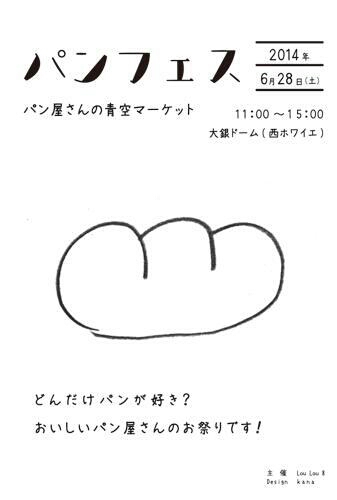 パンフェス
2014年
6月28日(土)
パン屋さんの青空マーケット
11:00～15:00
大銀ドーム(西ホワイエ)
どんだけパンが好き?
おいしいパン屋さんのお祭りです!
主催 Lou Lou 8
Design kana